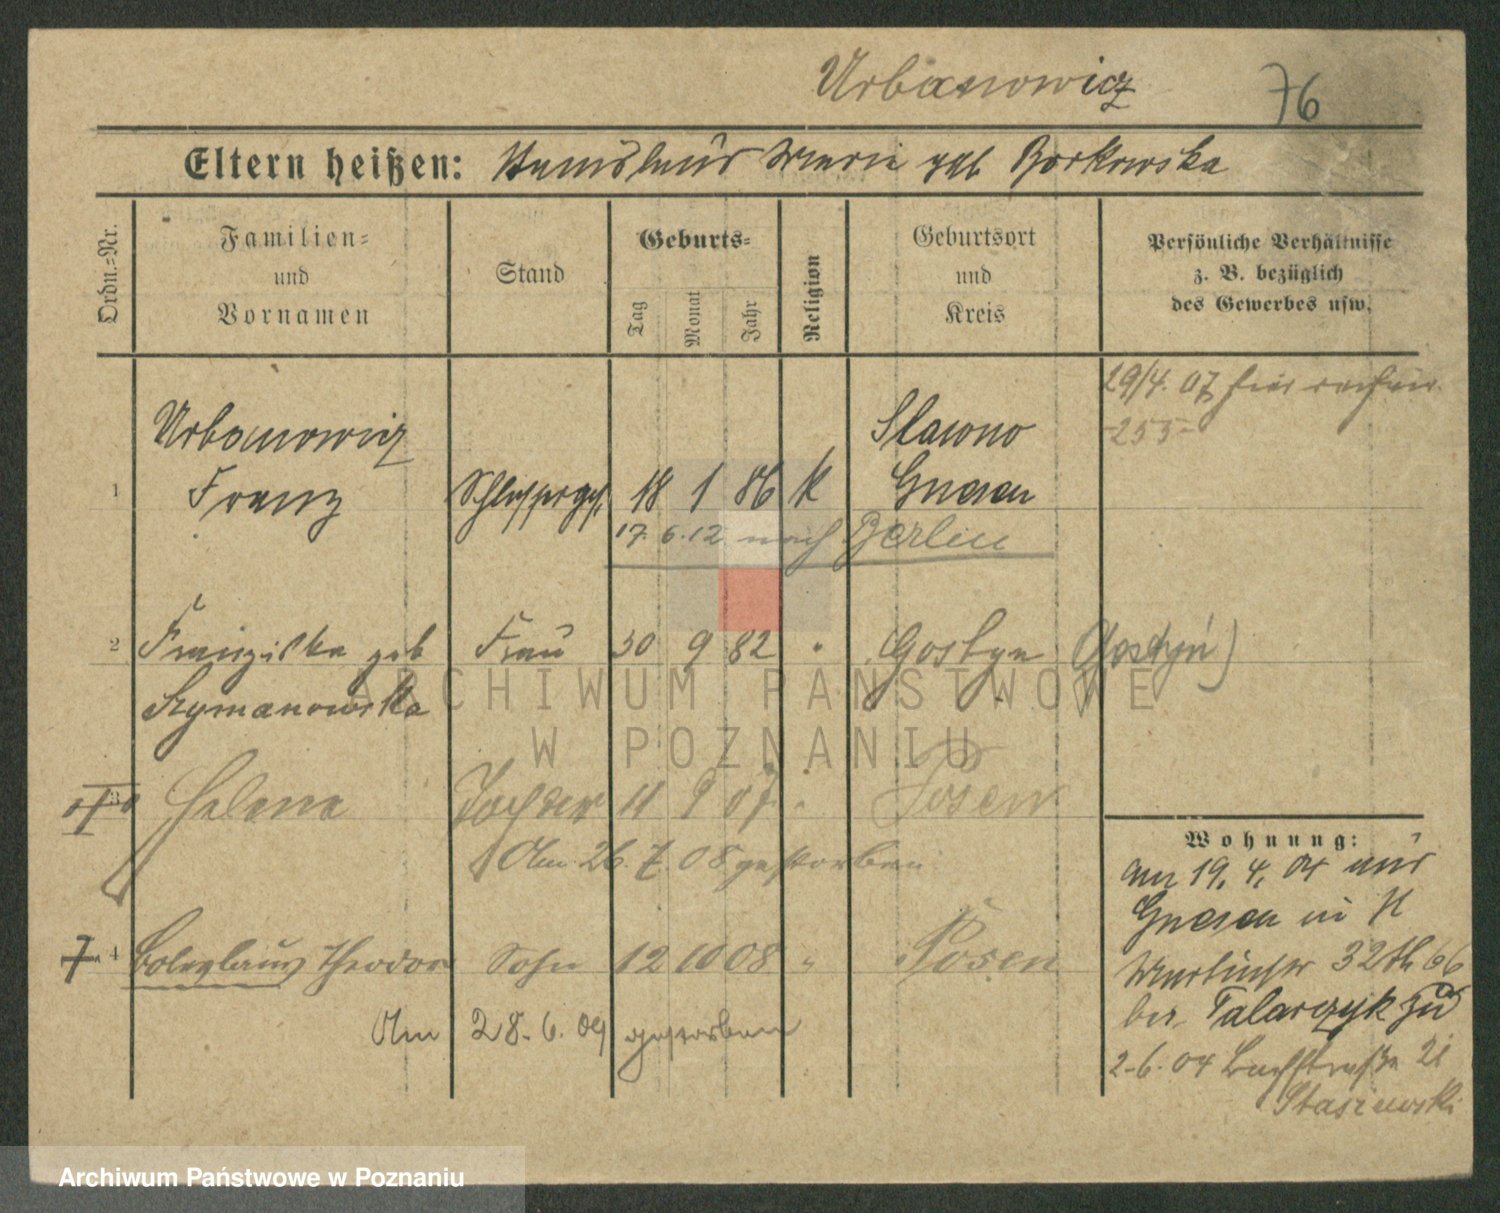 Urbanowicz
76
Eltern heißen: Stanislaus Marie geb Borkowska
Ordn.=Nr.
Familien=
und
Vornamen
Stand
Geburts=
Tag
Monat
Jahr
Religion
Geburtsort
und
Kreis
Persönliche Verhältnisse
z. B. bezüglich
des Gewerbes usw.
29/4. 07 hier
255
Urbanowicz Slawno
1 Franz Schlosserges. 18 1 86 K Gnesen
17. 6. 12 nach Berlin
2 Franziska geb Frau 30 9 82 " Gostyn (Gostyń)
Szymanowska
3 Helene Tochter 11 9 07 " Posen
Am 26. 7. 08 gestorben
4 Boleslaus Theodor Sohn 12 10 08 " Posen
Am 28. 6. 09 gestorben
Wohnung:
am 19. 4. 04 aus
Gnesen in
32 66
bei Talarczyk zu
2. 6. 04
Stasinski
ARCHIWUM PAŃSTWOWE
W POZNANIU
Archiwum Państwowe w Poznaniu